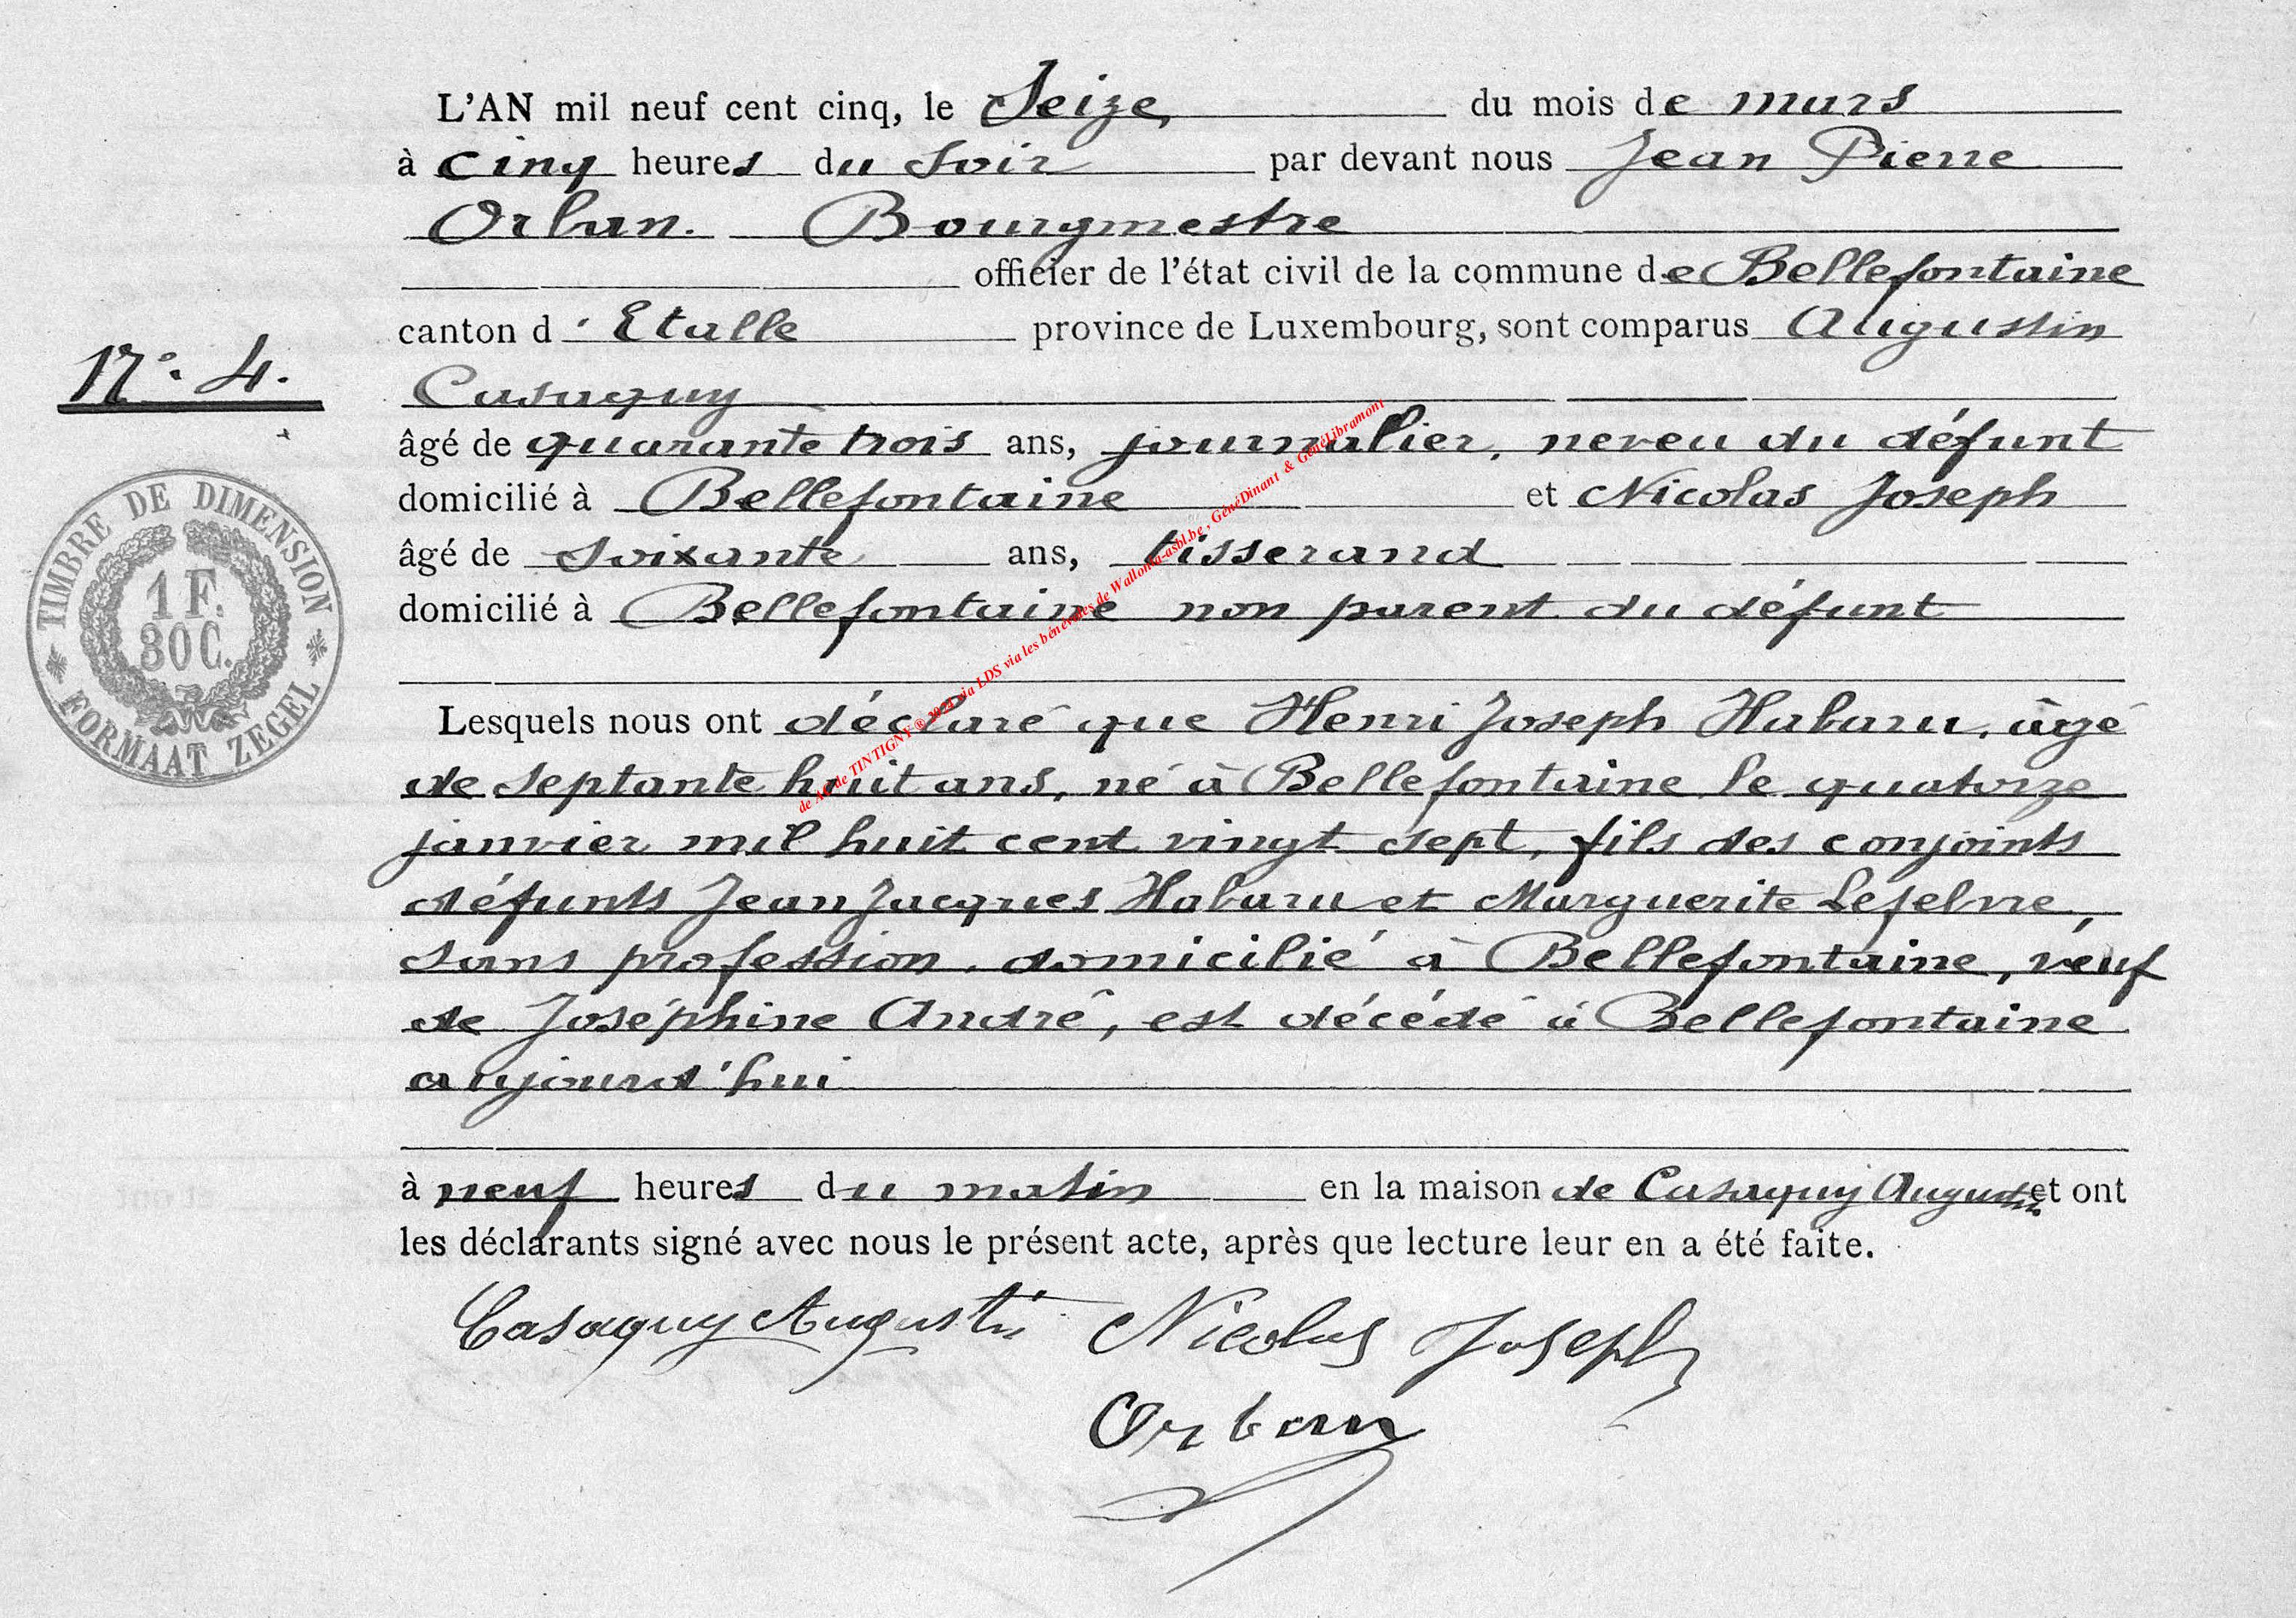 L'AN mil neuf cent cinq, le Seize du mois de mars
à cinq heures du soir par devant nous Jean Pierre
Orban. Bourgmestre
officier de l'état civil de la commune de Bellefontaine
canton d'Etalle province de Luxembourg, sont comparus Augustin
N° 4.
Casaquy
âgé de quarante trois ans, journalier, neveu du défunt
domicilié à Bellefontaine et Nicolas Joseph
âgé de soixante ans, tisserand
domicilié à Bellefontaine non parent du défunt
TIMBRE DE DIMENSION
1 F.
30 C.
FORMAAT ZEGEL
Lesquels nous ont déclaré que Henri Joseph Habaru, âgé
de septante huit ans, né à Bellefontaine le quatorze
janvier mil huit cent vingt sept, fils des conjoints
défunts Jean Jacques Habaru et Marguerite Lefebvre,
sans profession, domicilié à Bellefontaine, veuf
de Joséphine André, est décédé à Bellefontaine
aujourd'hui
à neuf heures du matin en la maison de Casaquy Augustin et ont
les déclarants signé avec nous le présent acte, après que lecture leur en a été faite.
Casaquy Augustin Nicolas Joseph
Orban
de AC de TINTIGNY ® via LDS via les bénévoles de Wallonia-asbl.be, GénéDinant & GénéLibramont